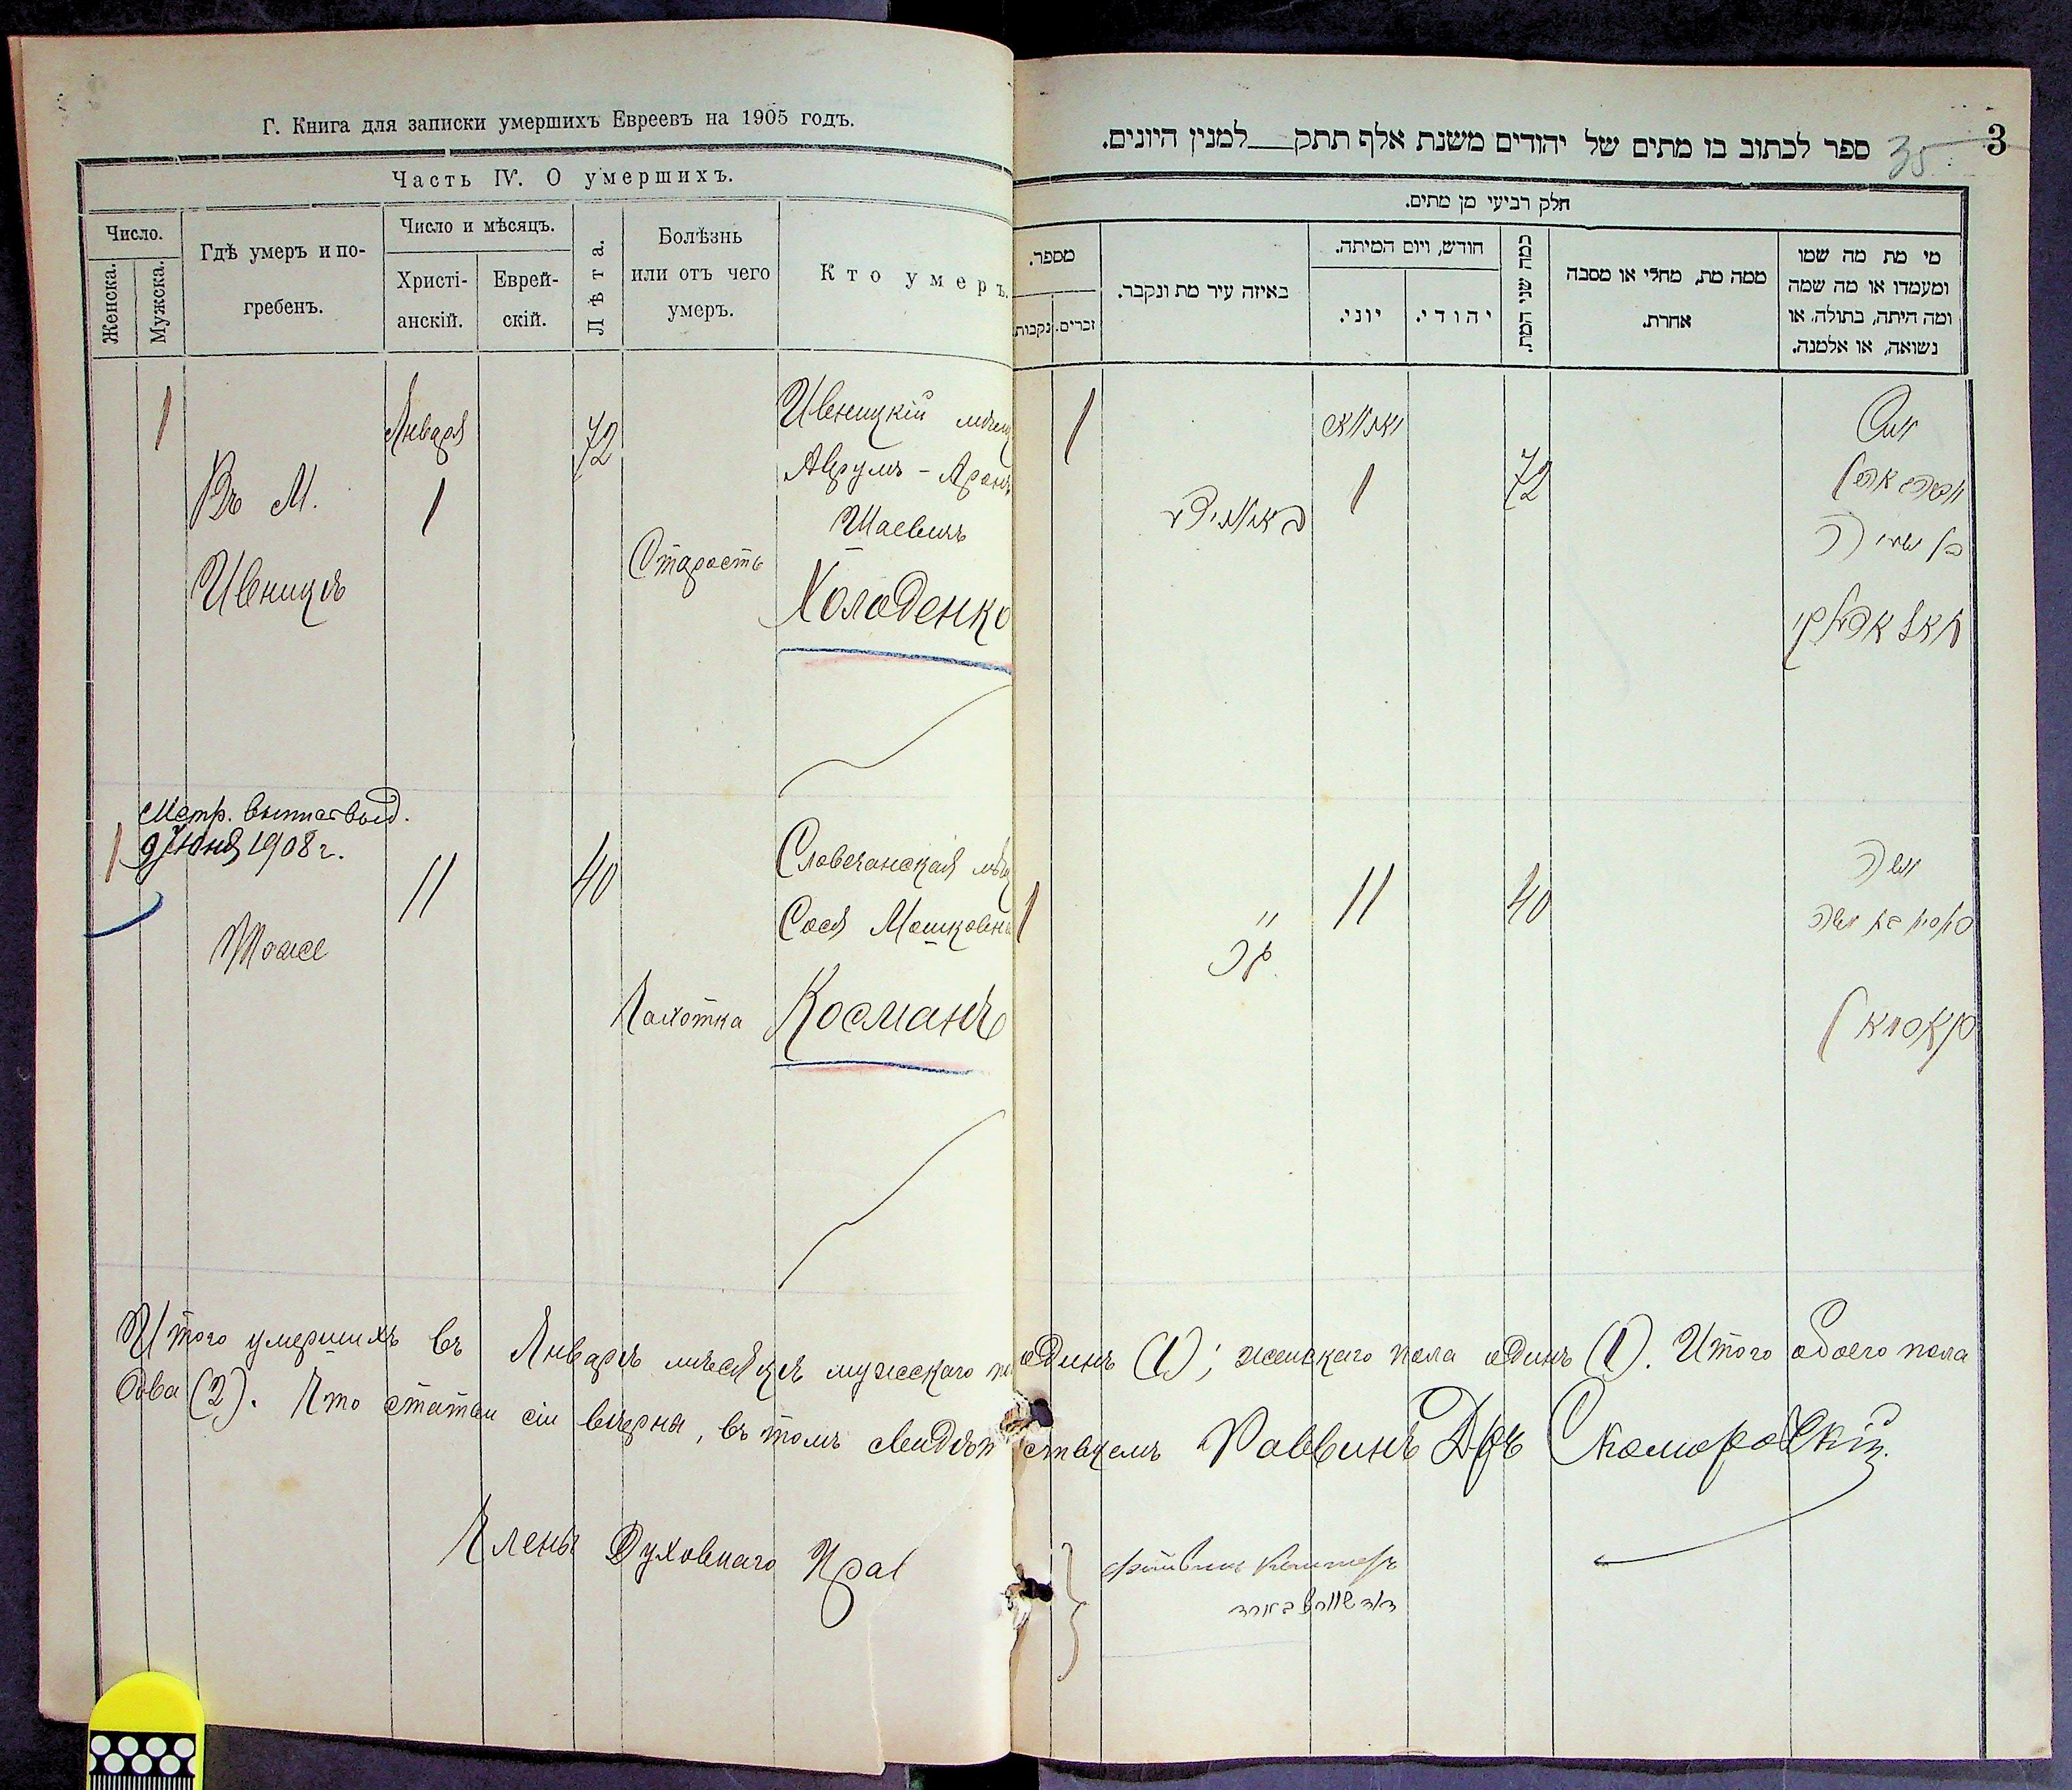 Г. Книга для записки умершихъ Евреевъ на 1905 годъ.
Часть IV. О умершихъ.
Число.
Женска.
Мужска.
Гдѣ умеръ и по-
гребенъ.
Число и мѣсяцъ.
Христі-
анскій.
Еврей-
скій.
Лѣта.
Болѣзнь
или отъ чего
умеръ.
Кто умеръ.
1
Въ М.
Ивницѣ
Января
1
72
Старость
Ивницкій мѣщ
Аврумъ - Аронъ
Шаевичъ
Холоденко
Метр. выпись выд.
9 Юня 1908 г.
1
Тоже
11
40
Чахотка
Словечанская мѣщ
Сося Мошковна
Косманъ
3
35
ספר לכתוב בו מתים של יהודים משנת אלף תתק למנין היונים.
חלק רביעי מן מתים.
מספר.
נקבות.
זכרים.
באיזה עיר מת ונקבר.
חודש, ויום המיתה.
יוני.
יהודי.
כמה שני המת.
ממה מת, מחלי או מסבה
אחרת.
מי מת מה שמו
ומעמדו או מה שמה
ומה היתה, בתולה, או
נשואה, או אלמנה.
1
1
72
1
11
40
Итого умершихъ въ Январѣ мѣсяцѣ мужскаго по одинъ (1); женскаго пола одинъ (1). Итого обоего пола
два (2). Что статьи сіи вѣрны, въ томъ свидѣтельствуемъ Раввинъ Д-ръ Скоморовскій.
Члены Духовнаго Прав